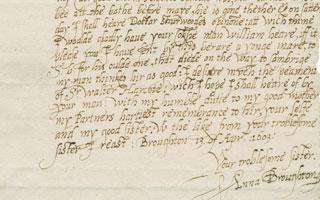 bee att the bathe before mate bie is one thether & on satter
day. I shall heare Docttar opinone: att wich thime
I woulde gladly have your man william heare, if it
please you I have by this berare a yonge mare, to
for his oulde one, that diede on the way to cambrige
my man thinks hir as good: I desire myeh the peament
of Sr Walter Harcote: with I hope I shall heare of by
your man: with my humble dutie to my good mother
my Partners hartiest remembrance to hir, your selfe
and my good sister. & the like from your troblesome
sister I reast: Broughton 13 of Apr. 1603
Your troblesome sister.
Anna Broughton